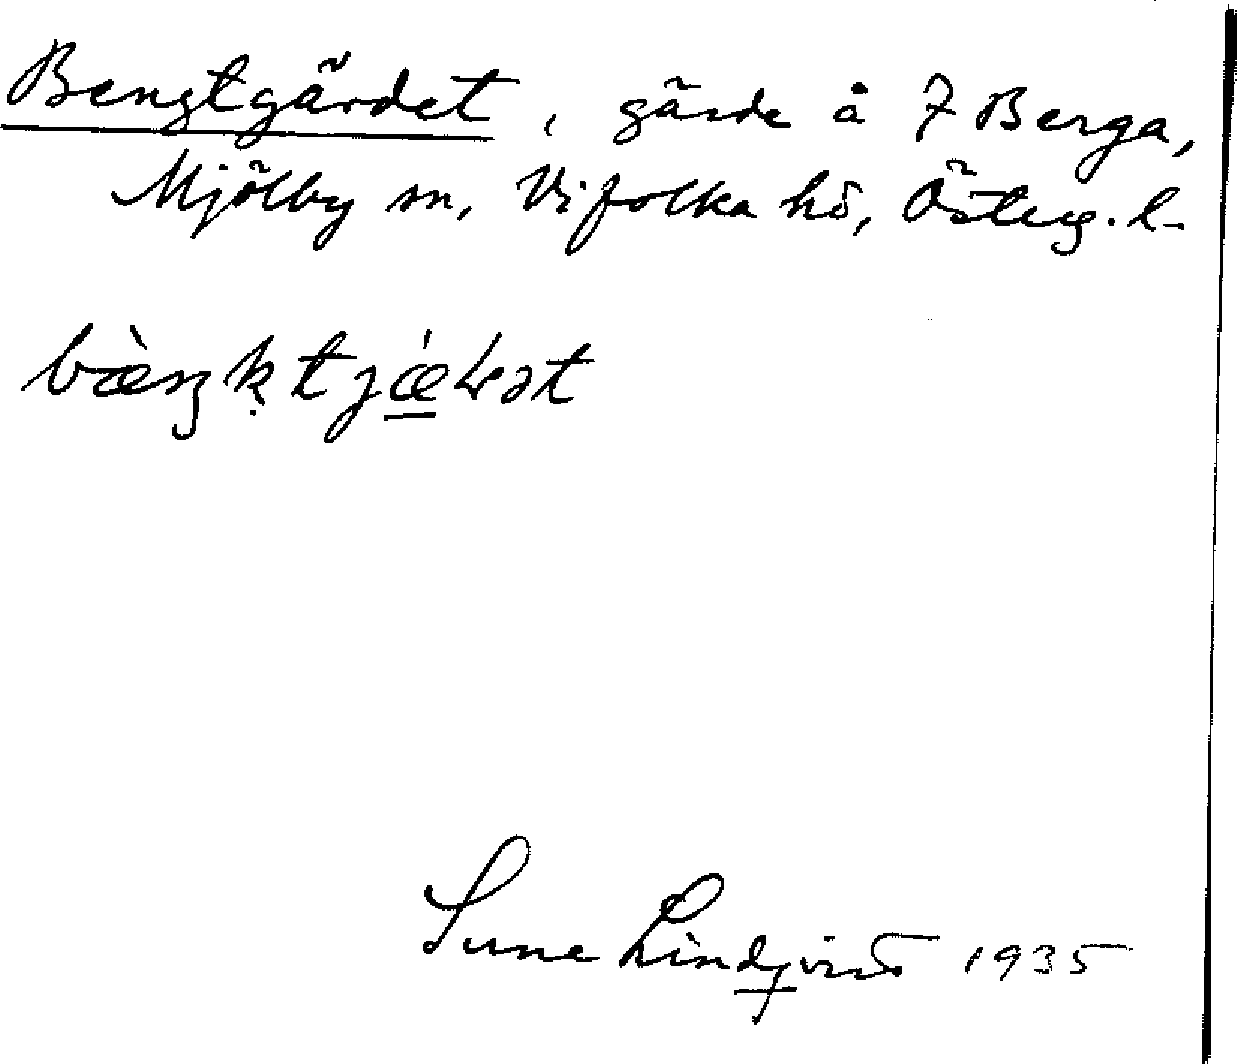 Bengtgärdet, gärde å 7 Berga,
Mjölby sn, Vifolka hd, Österg. l.
Sune Lindqvist 1935